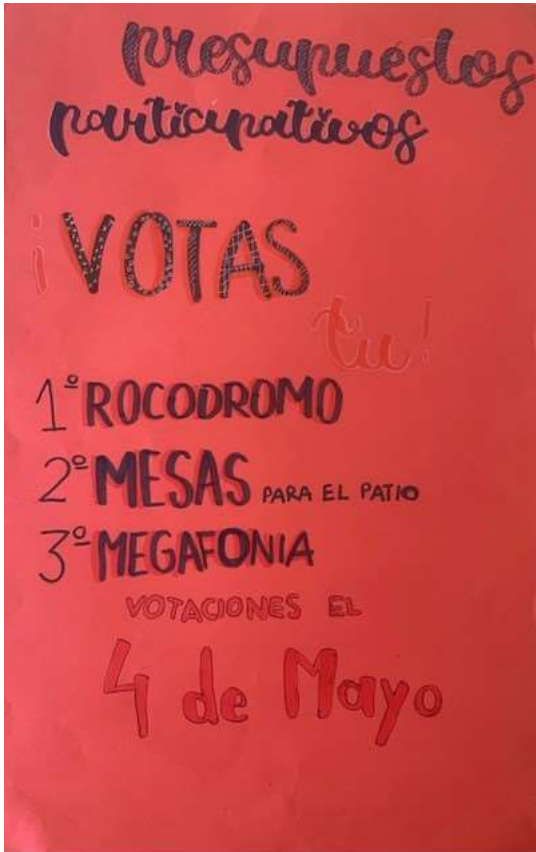 presupuestos
participativos
¡VOTAS
tu!
1º ROCODROMO
2º MESAS PARA EL PATIO
3º MEGAFONIA
VOTACIONES EL
4 de Mayo